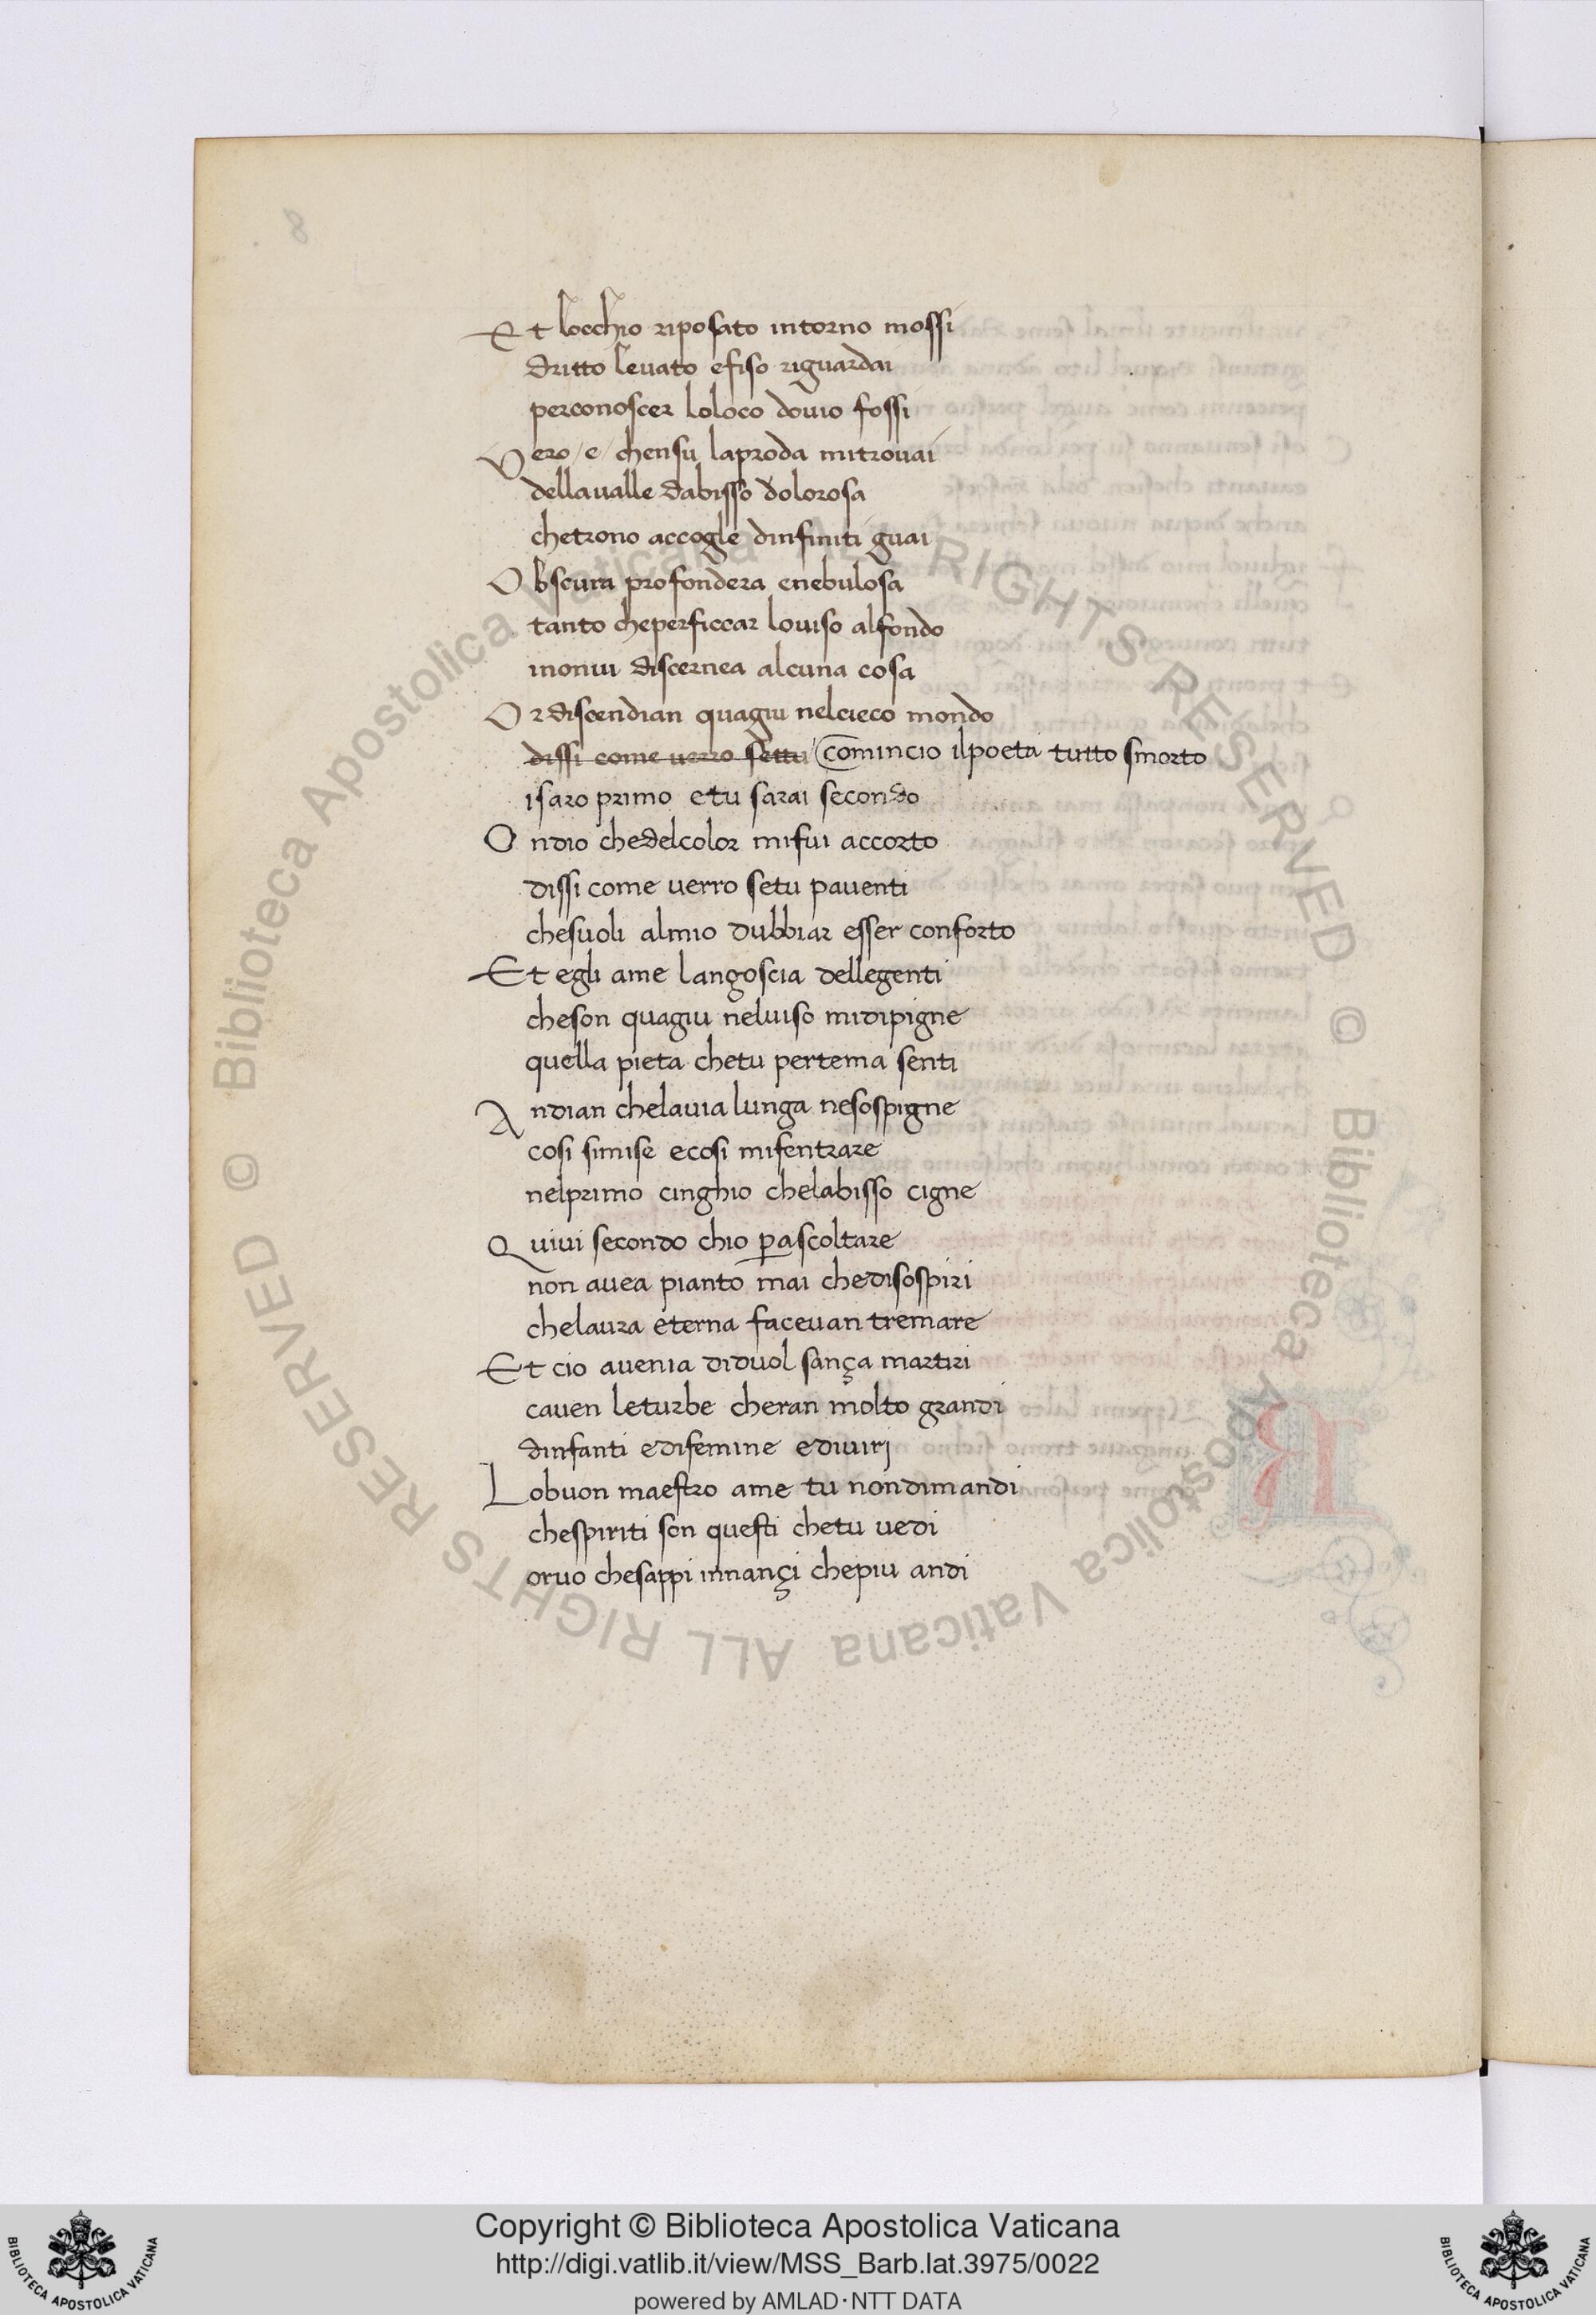 8
Et locchio riposato intorno mossi
dritto levato efiso riguardai
perconoscer loloco dovio fossi
Vero/e/ chensu laproda mitrovai
dellavalle dabisso dolorosa
chetrono accogle dinfiniti guai
Obscura profondera enebulosa
tanto cheperficcar loviso alfondo
inonvi discernea alcuna cosa
Or discendian quagiu nelcieco mondo
dissi come verro settu comincio ilpoeta tutto smorto
isaro primo etu sarai secondo
Ondio chedelcolor mifui accorto
dissi come verro setu paventi
chesuoli almio dubbiar esser conforto
Et egli ame langoscia dellegenti
cheson quagiu nelviso midipigne
quella pieta chetu pertema senti
Andian chelavia lunga nesospigne
cosi simise ecosi mifentrare
nelprimo cinghio chelabisso cigne
Quivi secondo chio pascoltare
non avea pianto mai chedisospiri
chelaura eterna facevan tremare
Et cio avenia diduol sança martiri
caven leturbe cheran molto grandi
dinfanti edifemine edivirj
Lobuon maestro ame tu nondimandi
chespiriti son questi chetu vedi
orvo chesappi innançi chepiu andi
© Biblioteca Apostolica Vaticana ALL RIGHTS RESERVED
© Biblioteca Apostolica Vaticana ALL RIGHTS RESERVED
Copyright © Biblioteca Apostolica Vaticana
http://digi.vatlib.it/view/MSS_Barb.lat.3975/0022
powered by AMLAD·NTT DATA
BIBLIOTECA APOSTOLICA VATICANA
BIBLIOTECA APOSTOLICA VATICANA